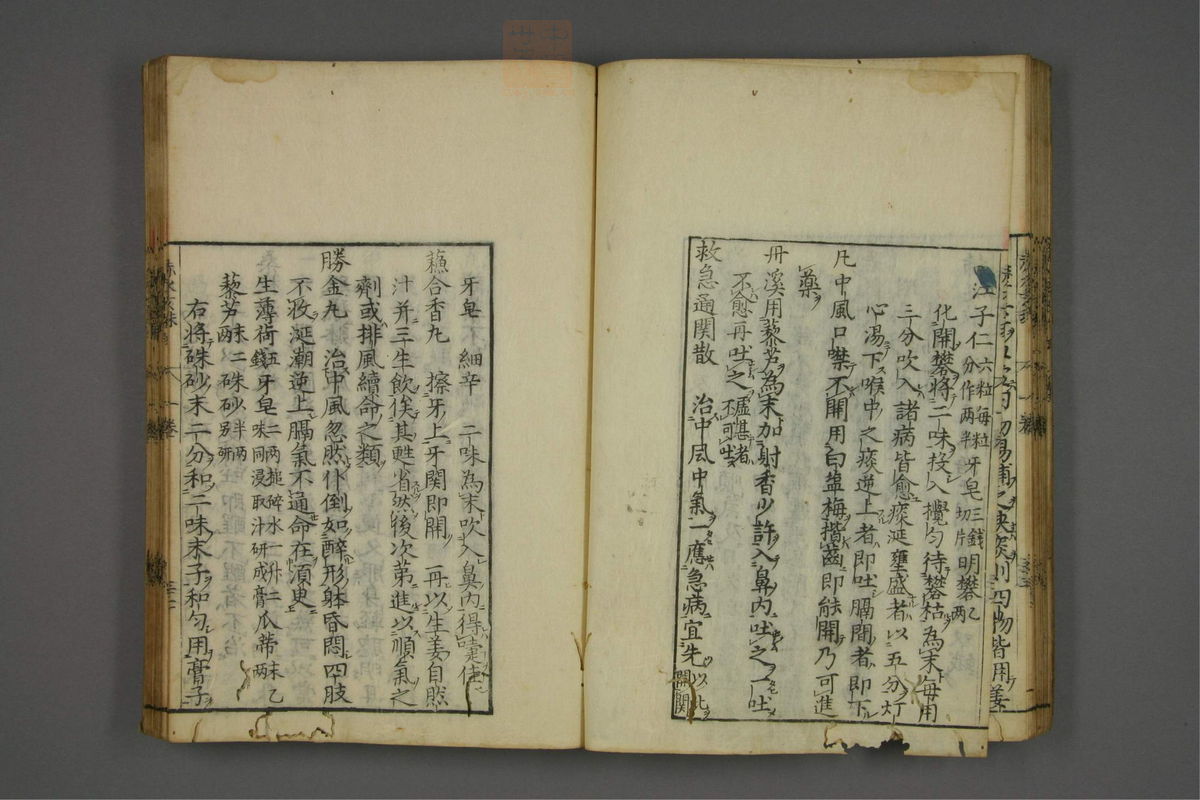 江子仁 六粒每粒分作两半 牙皂三錢切片 明礬乙两
化開礬將二味投入攪匀待礬枯為末每用
三分吹入諸病皆愈痰涎壅盛者以五分灯
心湯下喉中之痰逆上者即吐膈閉者即下
凡中風口噤不開用白盐梅揩齒即能開乃可進
藥
丹溪用藜芦為末加射香少許入鼻内吐之一吐
不愈再吐之 虛甚者不可吐
救急通関散 治中風中氣一應急病宜先以此開関
牙皂 細辛 二味為末吹入鼻内得嚏佳
蘓合香九 擦牙上牙関即開 一冊以生姜自然
汁并三生飲俟其甦省然後次第進以順氣之
劑或排風續命之類
勝金九 治中風忽然仆倒如醉形躰昏悶四肢
不收涎潮逆上膈氣不通命在湏臾
生薄荷五錢 牙皂二两搥碎水一升二味同浸取汁研成膏 瓜蒂末乙两
藜芦末二两 硃砂半两别研
右將硃砂末二分和二味末子和匀用膏子